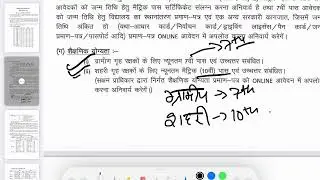 आवेदकों को जन्म तिथि हेतु मैट्रिक पास सर्टिफिकेट संलग्न करना अनिवार्य है तथा 7वीं पास आवेदक
को जन्म तिथि हेतु विद्यालय का स्थानांतरण प्रमाण-पत्र एवं एक अन्य सरकारी कागजात, जिसमें जन्म
तिथि अंकित हो (यथा-आधार कार्ड/निर्वाचन कार्ड/ड्राइविंग लाइसेंस/पैन कार्ड/जन्म
प्रमाण-पत्र/पासपोर्ट आदि) प्रमाण-पत्र ONLINE आवेदन में अपलोड करना अनिवार्य करेंगे।
(ग) शैक्षणिक योग्यता :-
→ 7th
(i) ग्रामीण गृह रक्षकों के लिए न्यूनतम 7वीं पास एवं उच्चतर संबंधित।
(ii) शहरी गृह रक्षकों के लिए न्यूनतम मैट्रिक (10वीं) पास एवं उच्चतर संबंधित।
(सक्षम प्राधिकार द्वारा निर्गत शैक्षणिक योग्यता प्रमाण-पत्र को ONLINE आवेदन में अपलोड
करना अनिवार्य करेंगे।)
ग्रामीण → 7th
शहरी → 10th